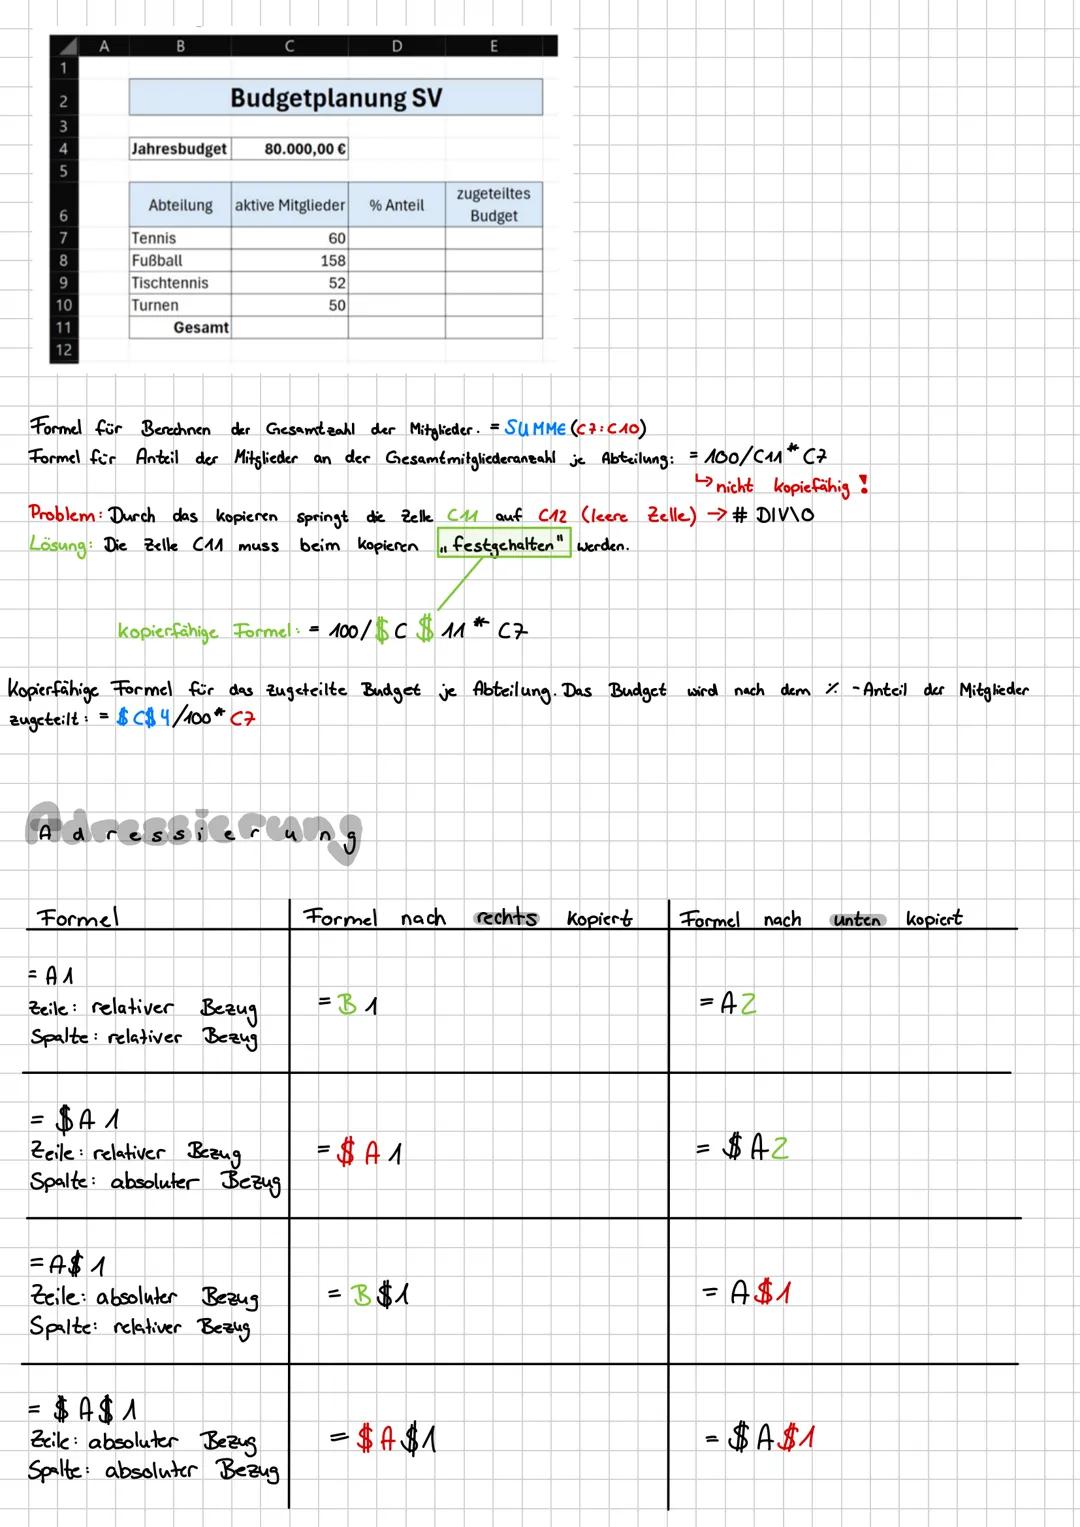 A B C D E
1
2 Budgetplanung SV
3
4 Jahresbudget 80.000,00 €
5
6 Abteilung aktive Mitglieder % Anteil zugeteiltes Budget
7 Tennis 60
8 Fußball 158
9 Tischtennis 52
10 Turnen 50
11 Gesamt
12
Formel für Berechnen der Gesamtzahl der Mitglieder. = SUMME (C7:C10)
Formel für Anteil der Mitglieder an der Gesamtmitgliederanzahl je Abteilung: = 100/C11 * C7
↳ nicht kopiefähig !
Problem: Durch das kopieren springt die Zelle C11 auf C12 (leere Zelle) → # DIV\0
Lösung: Die Zelle C11 muss beim kopieren „festgehalten" werden.
kopierfähige Formel: = 100/$C$11 * C7
Kopierfähige Formel für das zugeteilte Budget je Abteilung. Das Budget wird nach dem % -Anteil der Mitglieder
zugeteilt: = $C$4/100 * C7
Adressierung
Formel Formel nach rechts kopiert Formel nach unten kopiert
= A1
Zeile: relativer Bezug = B1 = A2
Spalte: relativer Bezug
= $A1
Zeile: relativer Bezug = $A1 = $A2
Spalte: absoluter Bezug
= A$1
Zeile: absoluter Bezug = B$1 = A$1
Spalte: relativer Bezug
= $A$1
Zeile: absoluter Bezug = $A$1 = $A$1
Spalte: absoluter Bezug